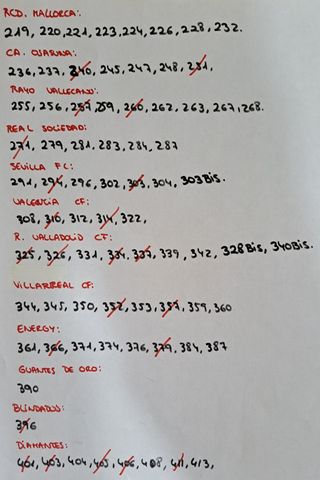 RCD. MALLORCA:
219, 220, 221, 223, 224, 226, 228, 232.
CA. OSASUNA:
236, 237, 240, 245, 247, 248, 251,
RAYO VALLECANO:
255, 256, 257, 259, 260, 262, 263, 267, 268.
REAL SOCIEDAD:
271, 279, 281, 283, 284, 287
SEVILLA FC:
291, 294, 296, 302, 303, 304, 303Bis.
VALENCIA CF:
308, 310, 312, 314, 322,
R. VALLADOLID CF:
325, 326, 331, 334, 337, 339, 342, 328Bis, 340Bis.
VILLARREAL CF:
344, 345, 350, 352, 353, 357, 359, 360
ENERGY:
361, 366, 371, 374, 376, 379, 384, 387
GUANTES DE ORO:
390
BLINDADOS:
396
DIAMANTES:
401, 403, 404, 405, 406, 408, 411, 413,